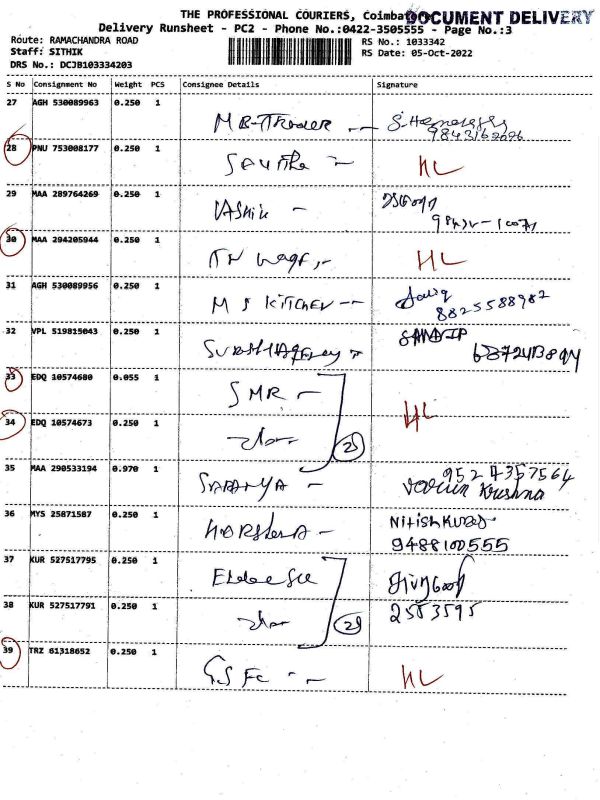 THE PROFESSIONAL COURIERS, Coimbatore
DOCUMENT DELIVERY
Delivery Runsheet - PC2 - Phone No.:0422-3505555 - Page No.:3
Route: RAMACHANDRA ROAD
Staff: SITHIK
DRS No.: DCJB103334203
RS No.: 1033342
RS Date: 05-Oct-2022
S No Consignment No Weight PCS Consignee Details Signature
27 AGH 530089963 0.250 1
MB-Trader
9843162626
28 PNU 753008177 0.250 1
HL
29 MAA 289764269 0.250 1
30 MAA 294205944 0.250 1
HL
31 AGH 530089956 0.250 1
M S KITCHEN
8825588982
32 VPL 519815043 0.250 1
SANDIP
33 EDQ 10574680 0.055 1
SMR
34 EDQ 10574673 0.250 1
HL
35 MAA 290533194 0.970 1
9524357564
Krishna
36 MYS 25871587 0.250 1
Nitish Kumar
9488100555
37 KUR 527517795 0.250 1
38 KUR 527517791 0.250 1
2553595
39 TRZ 61318652 0.250 1
GSFC
HL